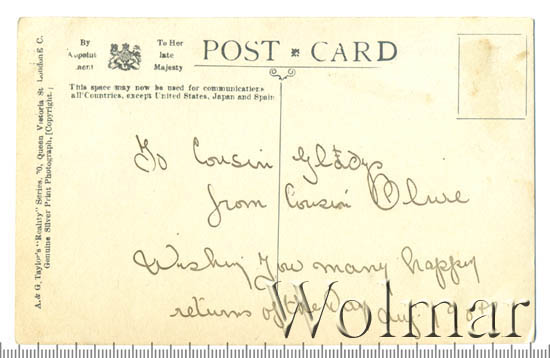 By
Appoint
ment
To Her
late
Majesty
POST CARD
This space may now be used for communications to
all Countries, except United States, Japan and Spain.
A. & G. Taylor's "Reality" Series, 70, Queen Victoria St. London E C.
Genuine Silver Print Photograph, [Copyright.]
To Cousin Gladys
from Cousin
Wishing You many happy
returns of the Day
Wolmar